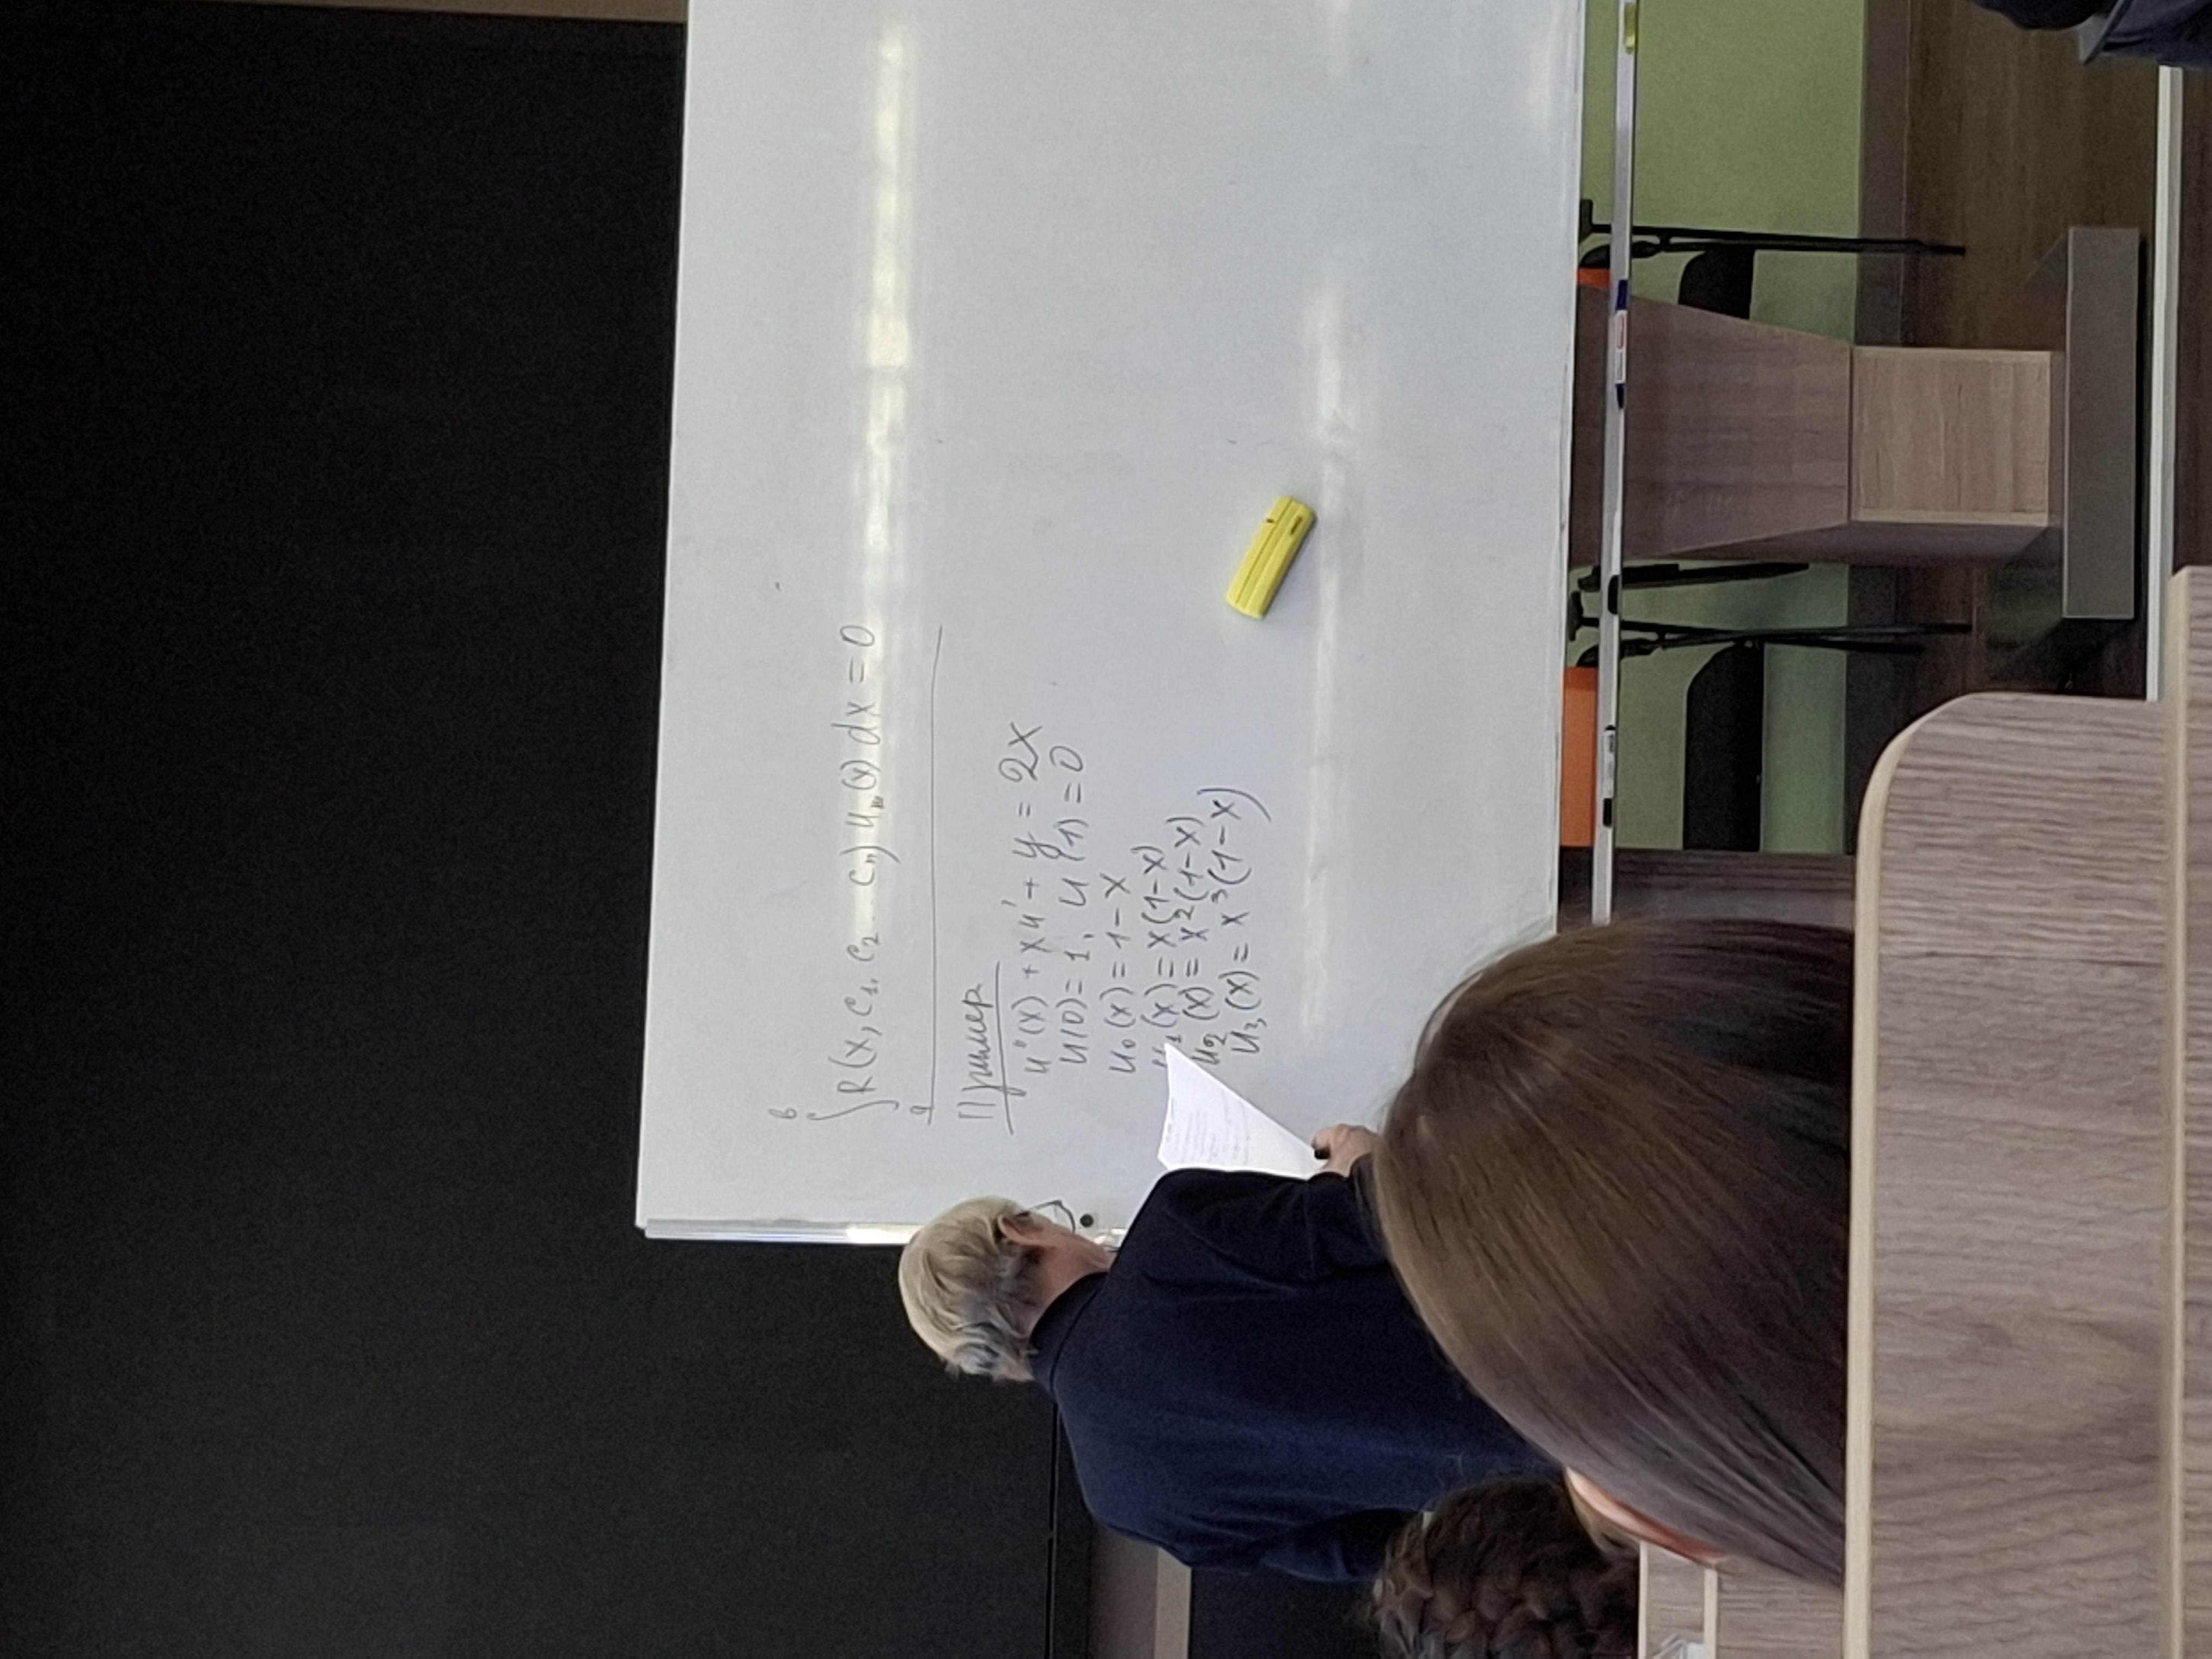 b
∫R(x, c₁, c₂ ... cₙ) uₘ(x) dx = 0
a
Пример
u''(x) + xu' + y = 2x
u(0) = 1, u(1) = 0
u₀(x) = 1-x
u₁(x) = x(1-x)
u₂(x) = x²(1-x)
u₃(x) = x³(1-x)